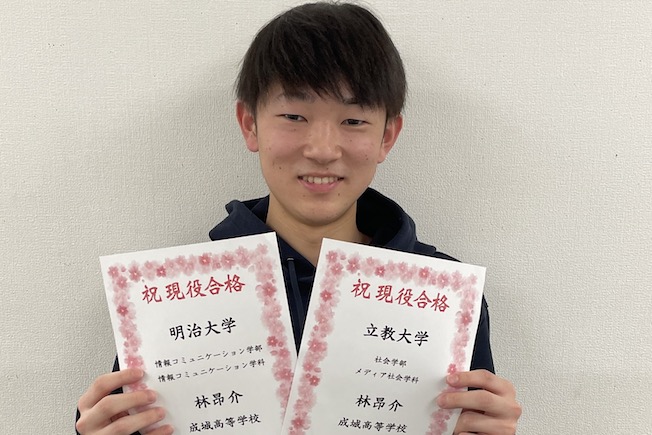 祝 現役合格
明治大学
情報コミュニケーション学部
情報コミュニケーション学科
林昂介
成城高等学校
祝 現役合格
立教大学
社会学部
メディア社会学科
林昂介
成城高等学校